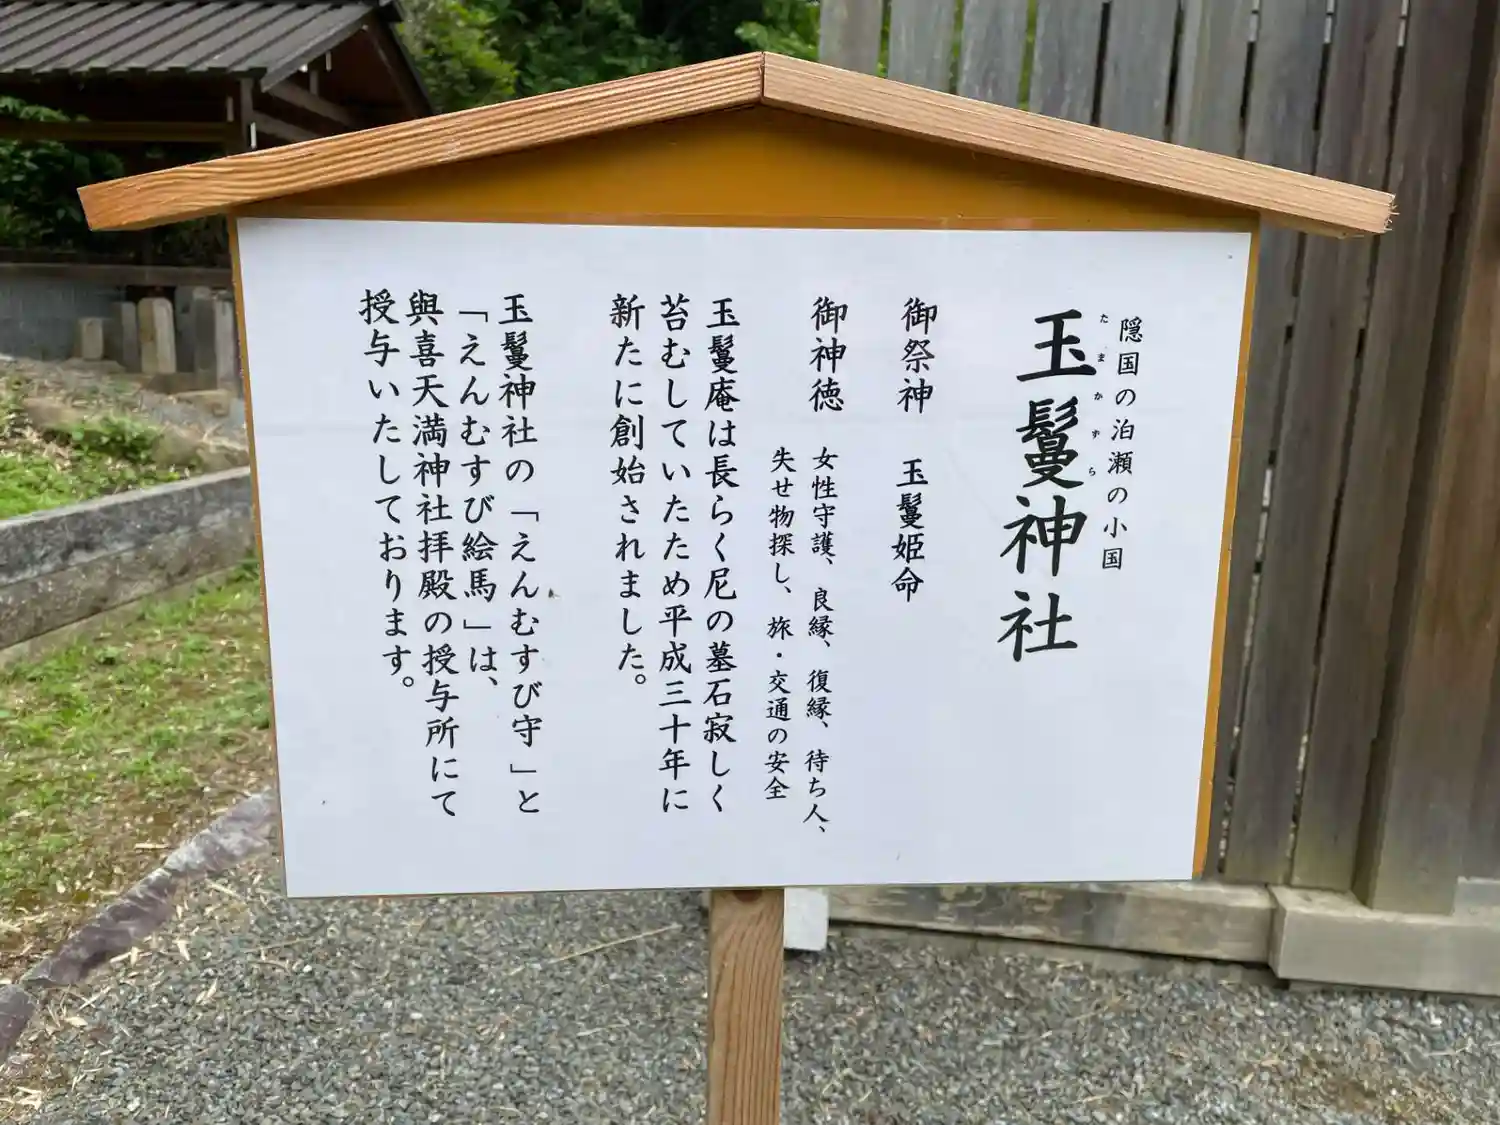 隠国の泊瀬の小国
玉鬘神社
たまかずら
御祭神　玉鬘姫命
御神徳　女性守護、良縁、復縁、待ち人、
失せ物探し、旅・交通の安全
玉鬘庵は長らく尼の墓石寂しく
苔むしていたため平成三十年に
新たに創始されました。
玉鬘神社の「えんむすび守」と
「えんむすび絵馬」は、
與喜天満神社拝殿の授与所にて
授与いたしております。